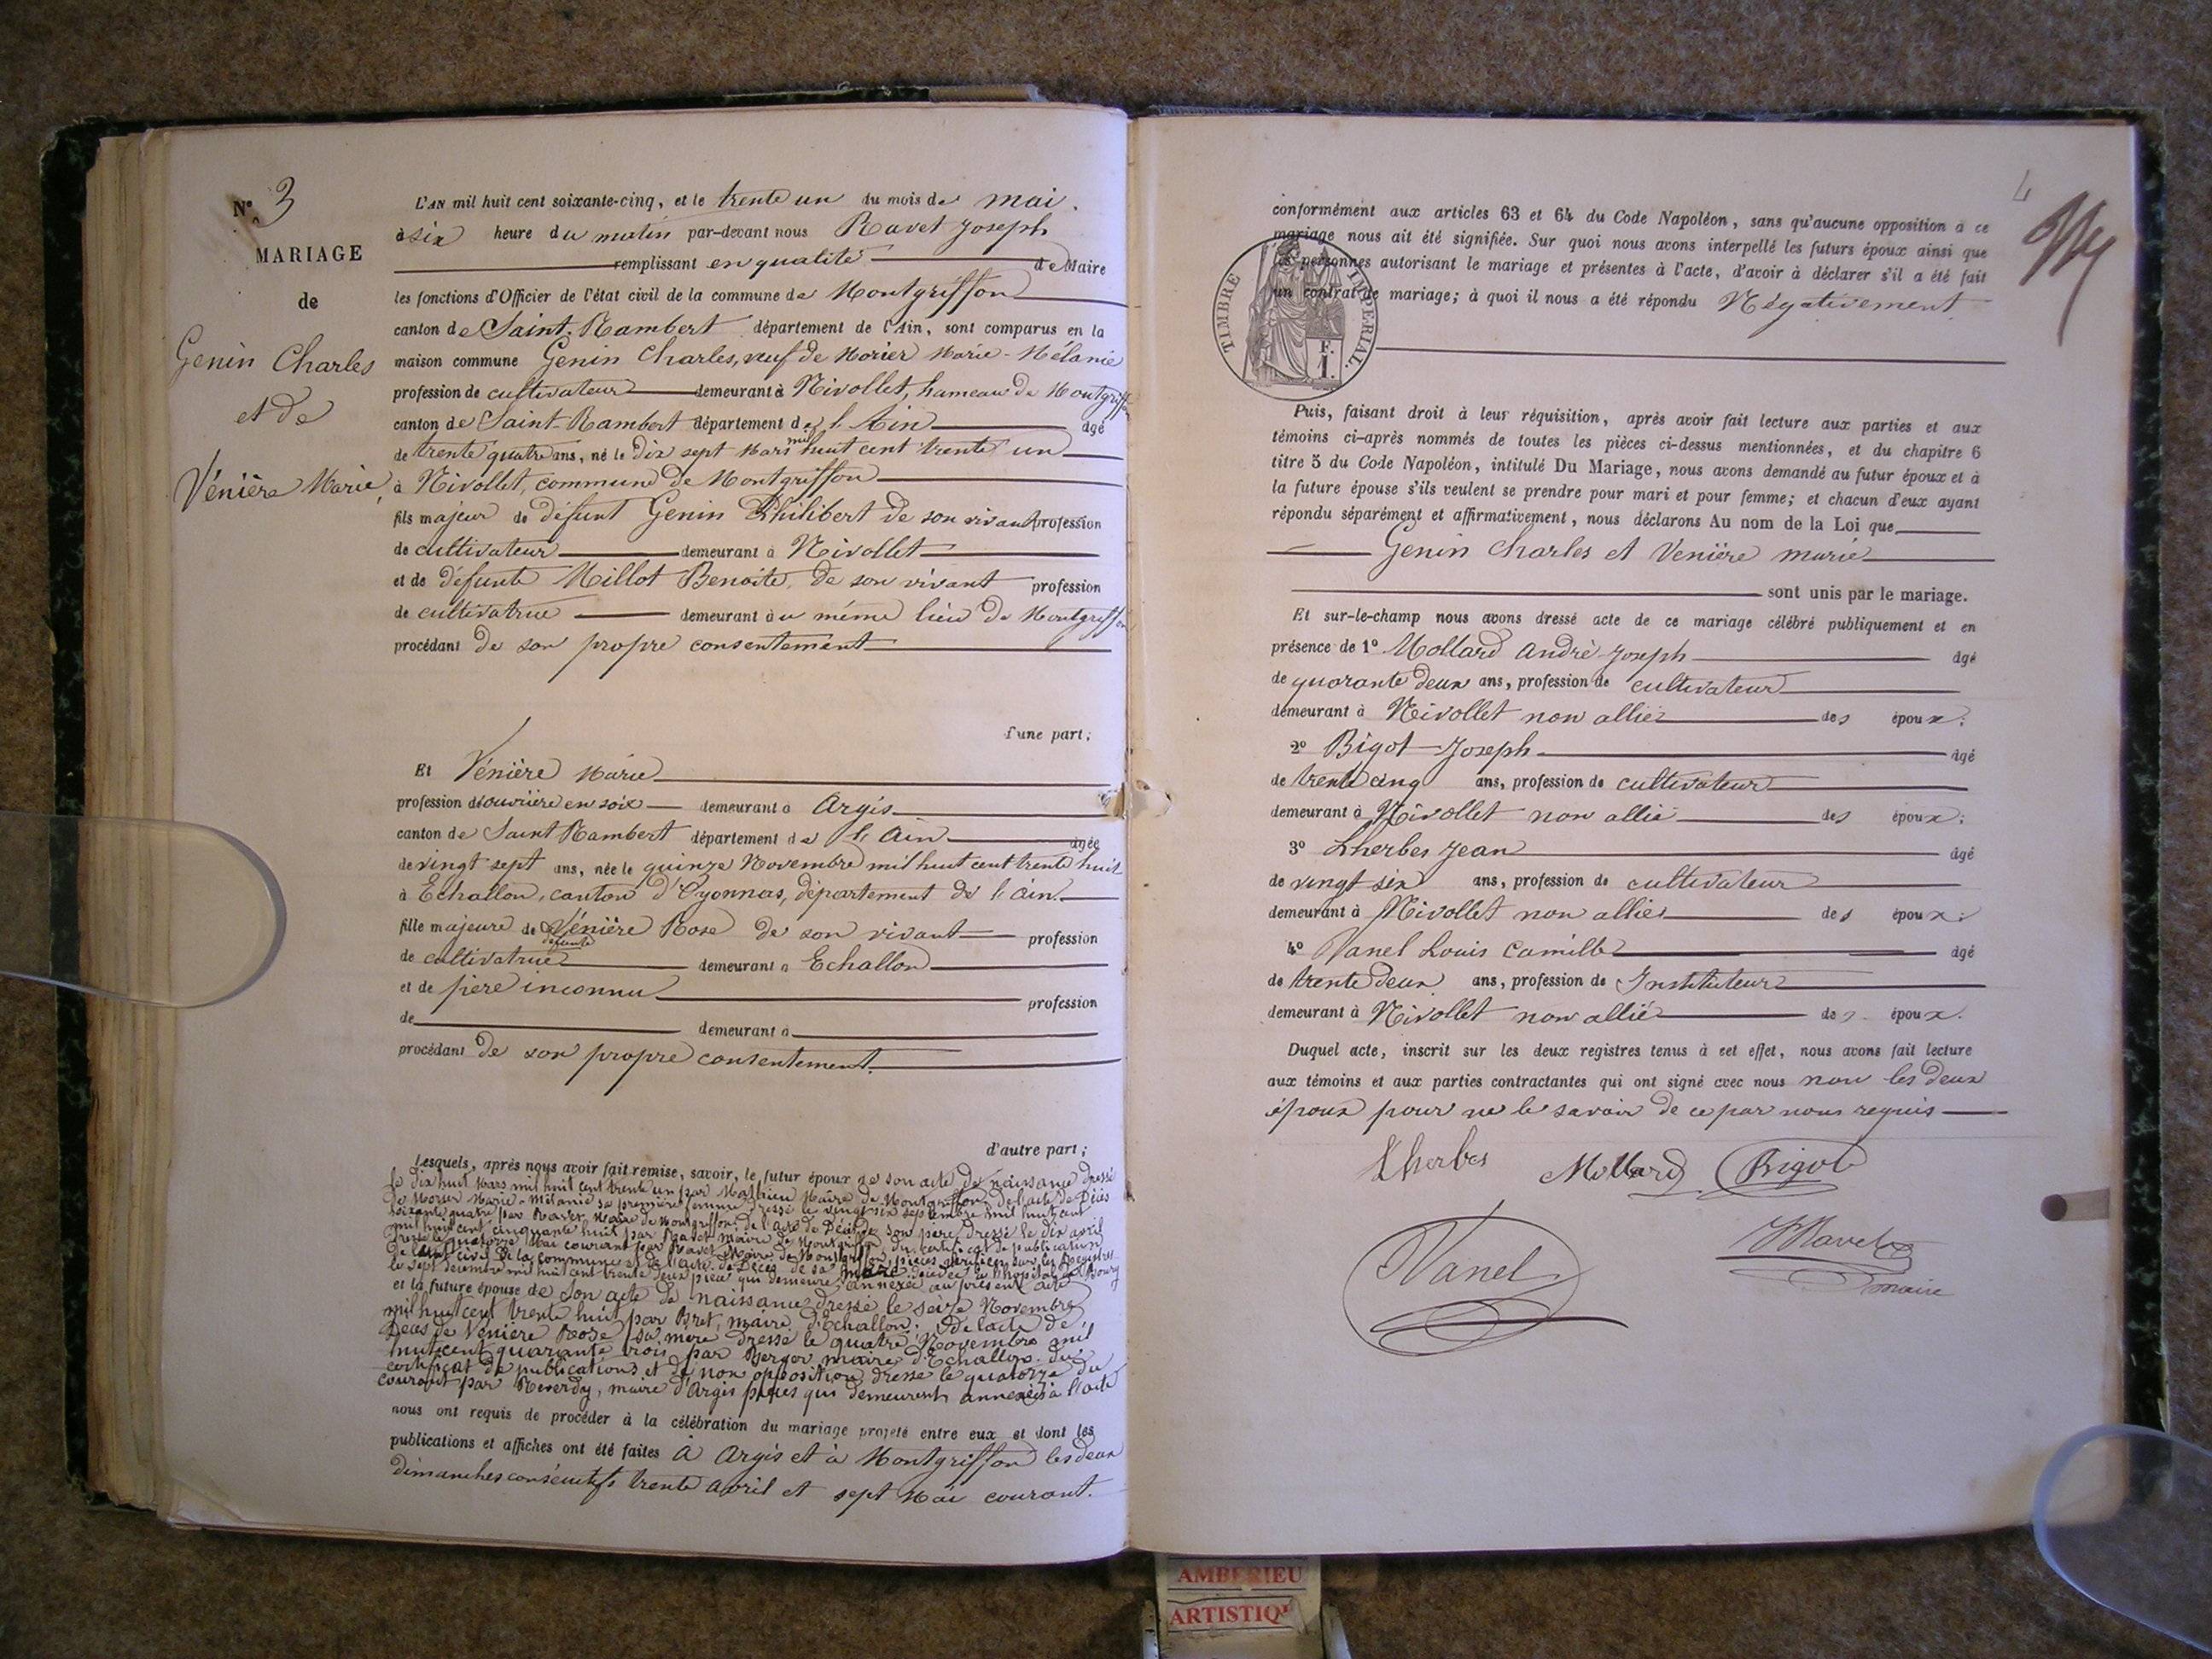 N° 3
MARIAGE
de
Genin Charles
et de
Vénière Marie
L'AN mil huit cent soixante-cinq, et le trente un du mois de mai.
à six heure du matin par-devant nous Ravet Joseph
remplissant en qualité de Maire
les fonctions d'Officier de l'état civil de la commune de Montgriffon
canton de Saint-Rambert département de l'Ain, sont comparus en la
maison commune Genin Charles, veuf de Morier Marie-Mélanie
profession de cultivateur demeurant à Nivollet, hameau de Montgriffon
canton de Saint-Rambert département de l'Ain âgé
de trente quatre ans, né le dix sept Mars mil huit cent trente un
à Nivollet, commune de Montgriffon
fils majeur de défunt Genin Philibert de son vivant profession
de cultivateur demeurant à Nivollet
et de défunte Millot Benoite de son vivant profession
de cultivatrice demeurant au même lieu de Montgriffon
procédant de son propre consentement
d'une part;
Et Vénière Marie
profession d'ouvrière en soie demeurant à Argis
canton de Saint Rambert département de l'Ain âgée
de vingt sept ans, née le quinze Novembre mil huit cent trente huit
à Echallon, canton d'Oyonnas, département de l'Ain.
fille majeure de défunte Vénière Rose de son vivant profession
de cultivatrice demeurant à Echallon
et de père inconnu profession
de demeurant à
procédant de son propre consentement.
d'autre part;
Lesquels, après nous avoir fait remise, savoir, le futur époux de son acte de naissance dressé
le dix huit Mars mil huit cent trente un par Mathieu Maire de Montgriffon de l'acte de Décès
de Morier Marie-Mélanie sa première femme dressé le vingt six septembre mil huit cent
soixante quatre par Ravet, Maire de Montgriffon, de l'acte de Décès de son père dressé le dix avril
mil huit cent cinquante huit par Ravet maire de Montgriffon du certificat de publication
dressé le quatorze Mai courant par Ravet Maire de Montgriffon, pièces vérifiées sur les Registres
de l'état civil de la commune et de l'acte de Décès de sa mère décédée à l'hôpital de Bourg
le sept décembre mil huit cent trente deux pièce qui demeure annexée au présent acte
et la future épouse de son acte de naissance dressé le seize Novembre
mil huit cent trente huit par Bret, maire d'Echallon. De l'acte de
Décès de Vénière Rose sa mère dressé le quatre Novembre mil
huit cent quarante trois par Berger maire d'Echallon. du
certificat de publications et de non opposition dressé le quatorze du
courant par Reverdy, maire d'Argis pièces qui demeurent annexées à l'acte
nous ont requis de procéder à la célébration du mariage projeté entre eux et dont les
publications et affiches ont été faites à Argis et à Montgriffon les deux
dimanches consécutifs trente avril et sept Mai courant.
4
conformément aux articles 63 et 64 du Code Napoléon, sans qu'aucune opposition à ce
mariage nous ait été signifiée. Sur quoi nous avons interpellé les futurs époux ainsi que
les personnes autorisant le mariage et présentes à l'acte, d'avoir à déclarer s'il a été fait
un contrat de mariage; à quoi il nous a été répondu Négativement
TIMBRE IMPÉRIAL.
F.
1.
Puis, faisant droit à leur réquisition, après avoir fait lecture aux parties et aux
témoins ci-après nommés de toutes les pièces ci-dessus mentionnées, et du chapitre 6
titre 5 du Code Napoléon, intitulé Du Mariage, nous avons demandé au futur époux et à
la future épouse s'ils veulent se prendre pour mari et pour femme; et chacun d'eux ayant
répondu séparément et affirmativement, nous déclarons Au nom de la Loi que
Genin Charles et Venière marie
sont unis par le mariage.
Et sur-le-champ nous avons dressé acte de ce mariage célébré publiquement et en
présence de 1° Mollard André Joseph âgé
de quarante deux ans, profession de cultivateur
demeurant à Nivollet non allié des époux;
2° Bigot Joseph âgé
de trente cinq ans, profession de cultivateur
demeurant à Nivollet non allié des époux;
3° Lherbes Jean âgé
de vingt six ans, profession de cultivateur
demeurant à Nivollet non allié des époux;
4° Vanel Louis Camille âgé
de trente deux ans, profession de Instituteur
demeurant à Nivollet non allié des époux.
Duquel acte, inscrit sur les deux registres tenus à cet effet, nous avons fait lecture
aux témoins et aux parties contractantes qui ont signé avec nous non les deux
époux pour ne le savoir de ce par nous requis
Lherbes Mollard Bigot
Vanel Ravet
maire
AMBERIEU
ARTISTIQ